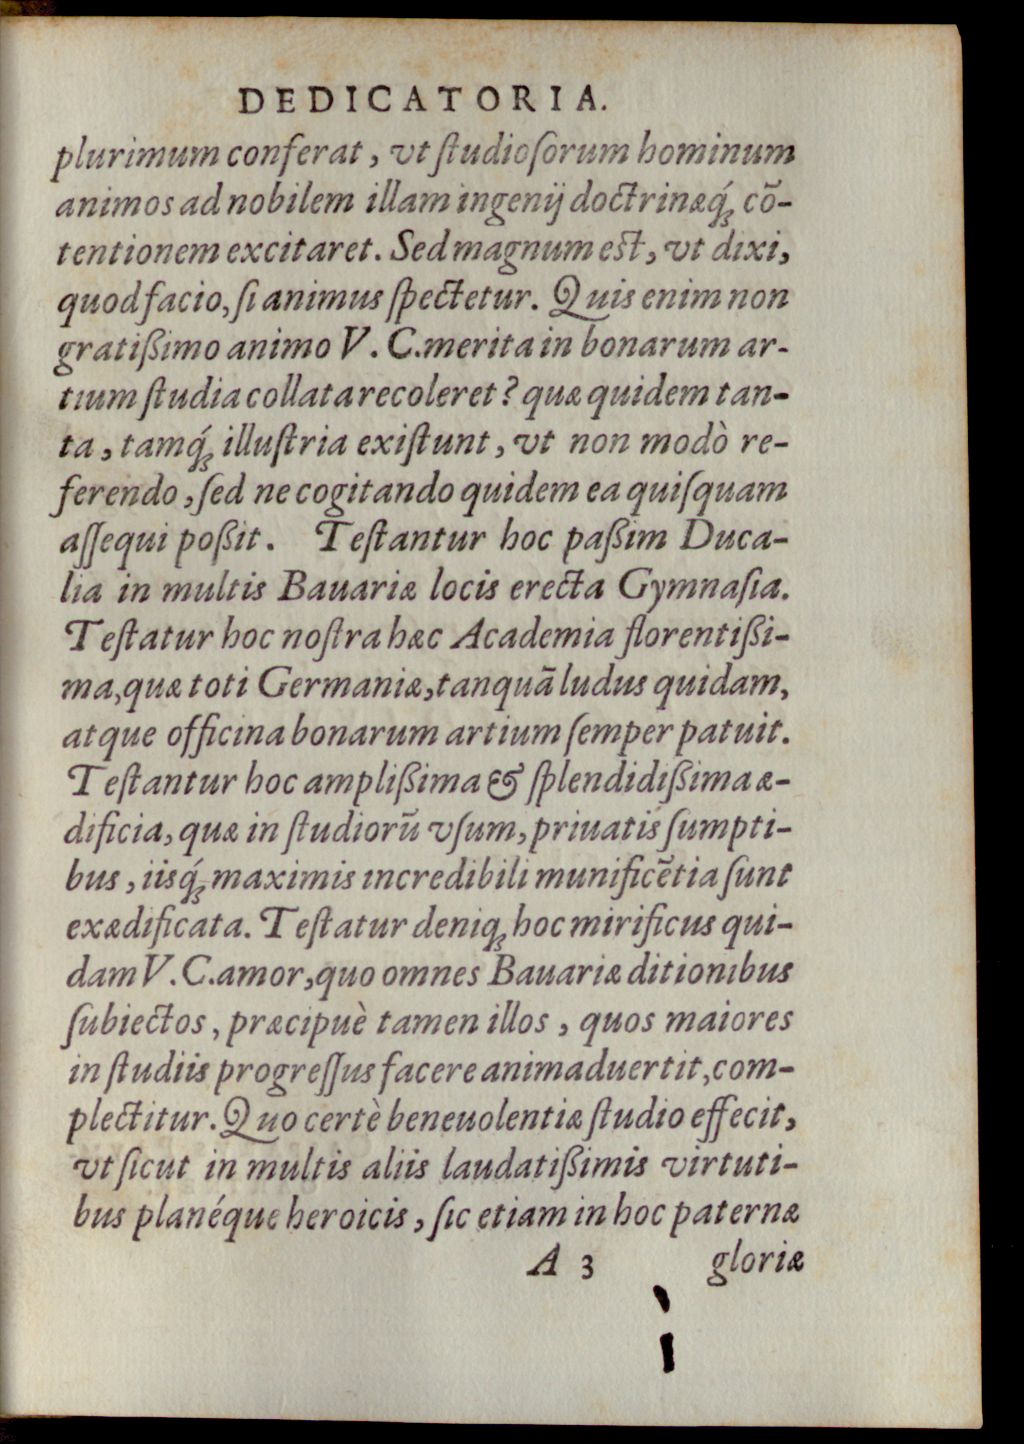 DEDICATORIA.
plurimum conferat, vt ſtudioſorum hominum
animos ad nobilem illam ingenij doctrinæq́ꝫ cō-
tentionem excitaret. Sed magnum est, vt dixi,
quod facio, ſi animus ſpectetur. Quis enim non
gratißimo animo V. C. merita in bonarum ar-
tium ſtudia collata recoleret? quæ quidem tan-
ta, tamq́ꝫ illuſtria exiſtunt, vt non modò re-
ferendo, ſed ne cogitando quidem ea quiſquam
aſſequi poßit. Teſtantur hoc paßim Duca-
lia in multis Bauariæ locis erecta Gymnaſia.
Teſtatur hoc noſtra hæc Academia florentißi-
ma, quæ toti Germaniæ, tanquā ludus quidam,
atque officina bonarum artium ſemper patuit.
Teſtantur hoc amplißima & ſplendidißima æ-
dificia, quæ in ſtudiorū vſum, priuatis ſumpti-
bus, iisq́ꝫ maximis incredibili munificētia ſunt
exædificata. Teſtatur deniqꝫ hoc mirificus qui-
dam V. C. amor, quo omnes Bauariæ ditionibus
ſubiectos, præcipuè tamen illos, quos maiores
in ſtudiis progreſſus facere animaduertit, com-
plectitur. Quo certè beneuolentiæ ſtudio effecit,
vt ſicut in multis aliis laudatißimis virtuti-
bus planéque heroicis, ſic etiam in hoc paternæ
A 3 gloriæ